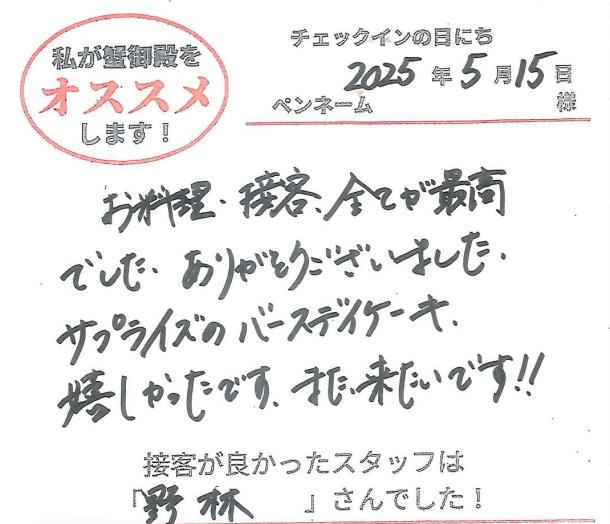 私が蟹御殿を
オススメ
します!
チェックインの日にち
2025年5月15日
ペンネーム 様
お料理・接客、全てが最高
でした。ありがとうございました。
サプライズのバースデイケーキ、
嬉しかったです。また来たいです!!
接客が良かったスタッフは
「野林 」さんでした!